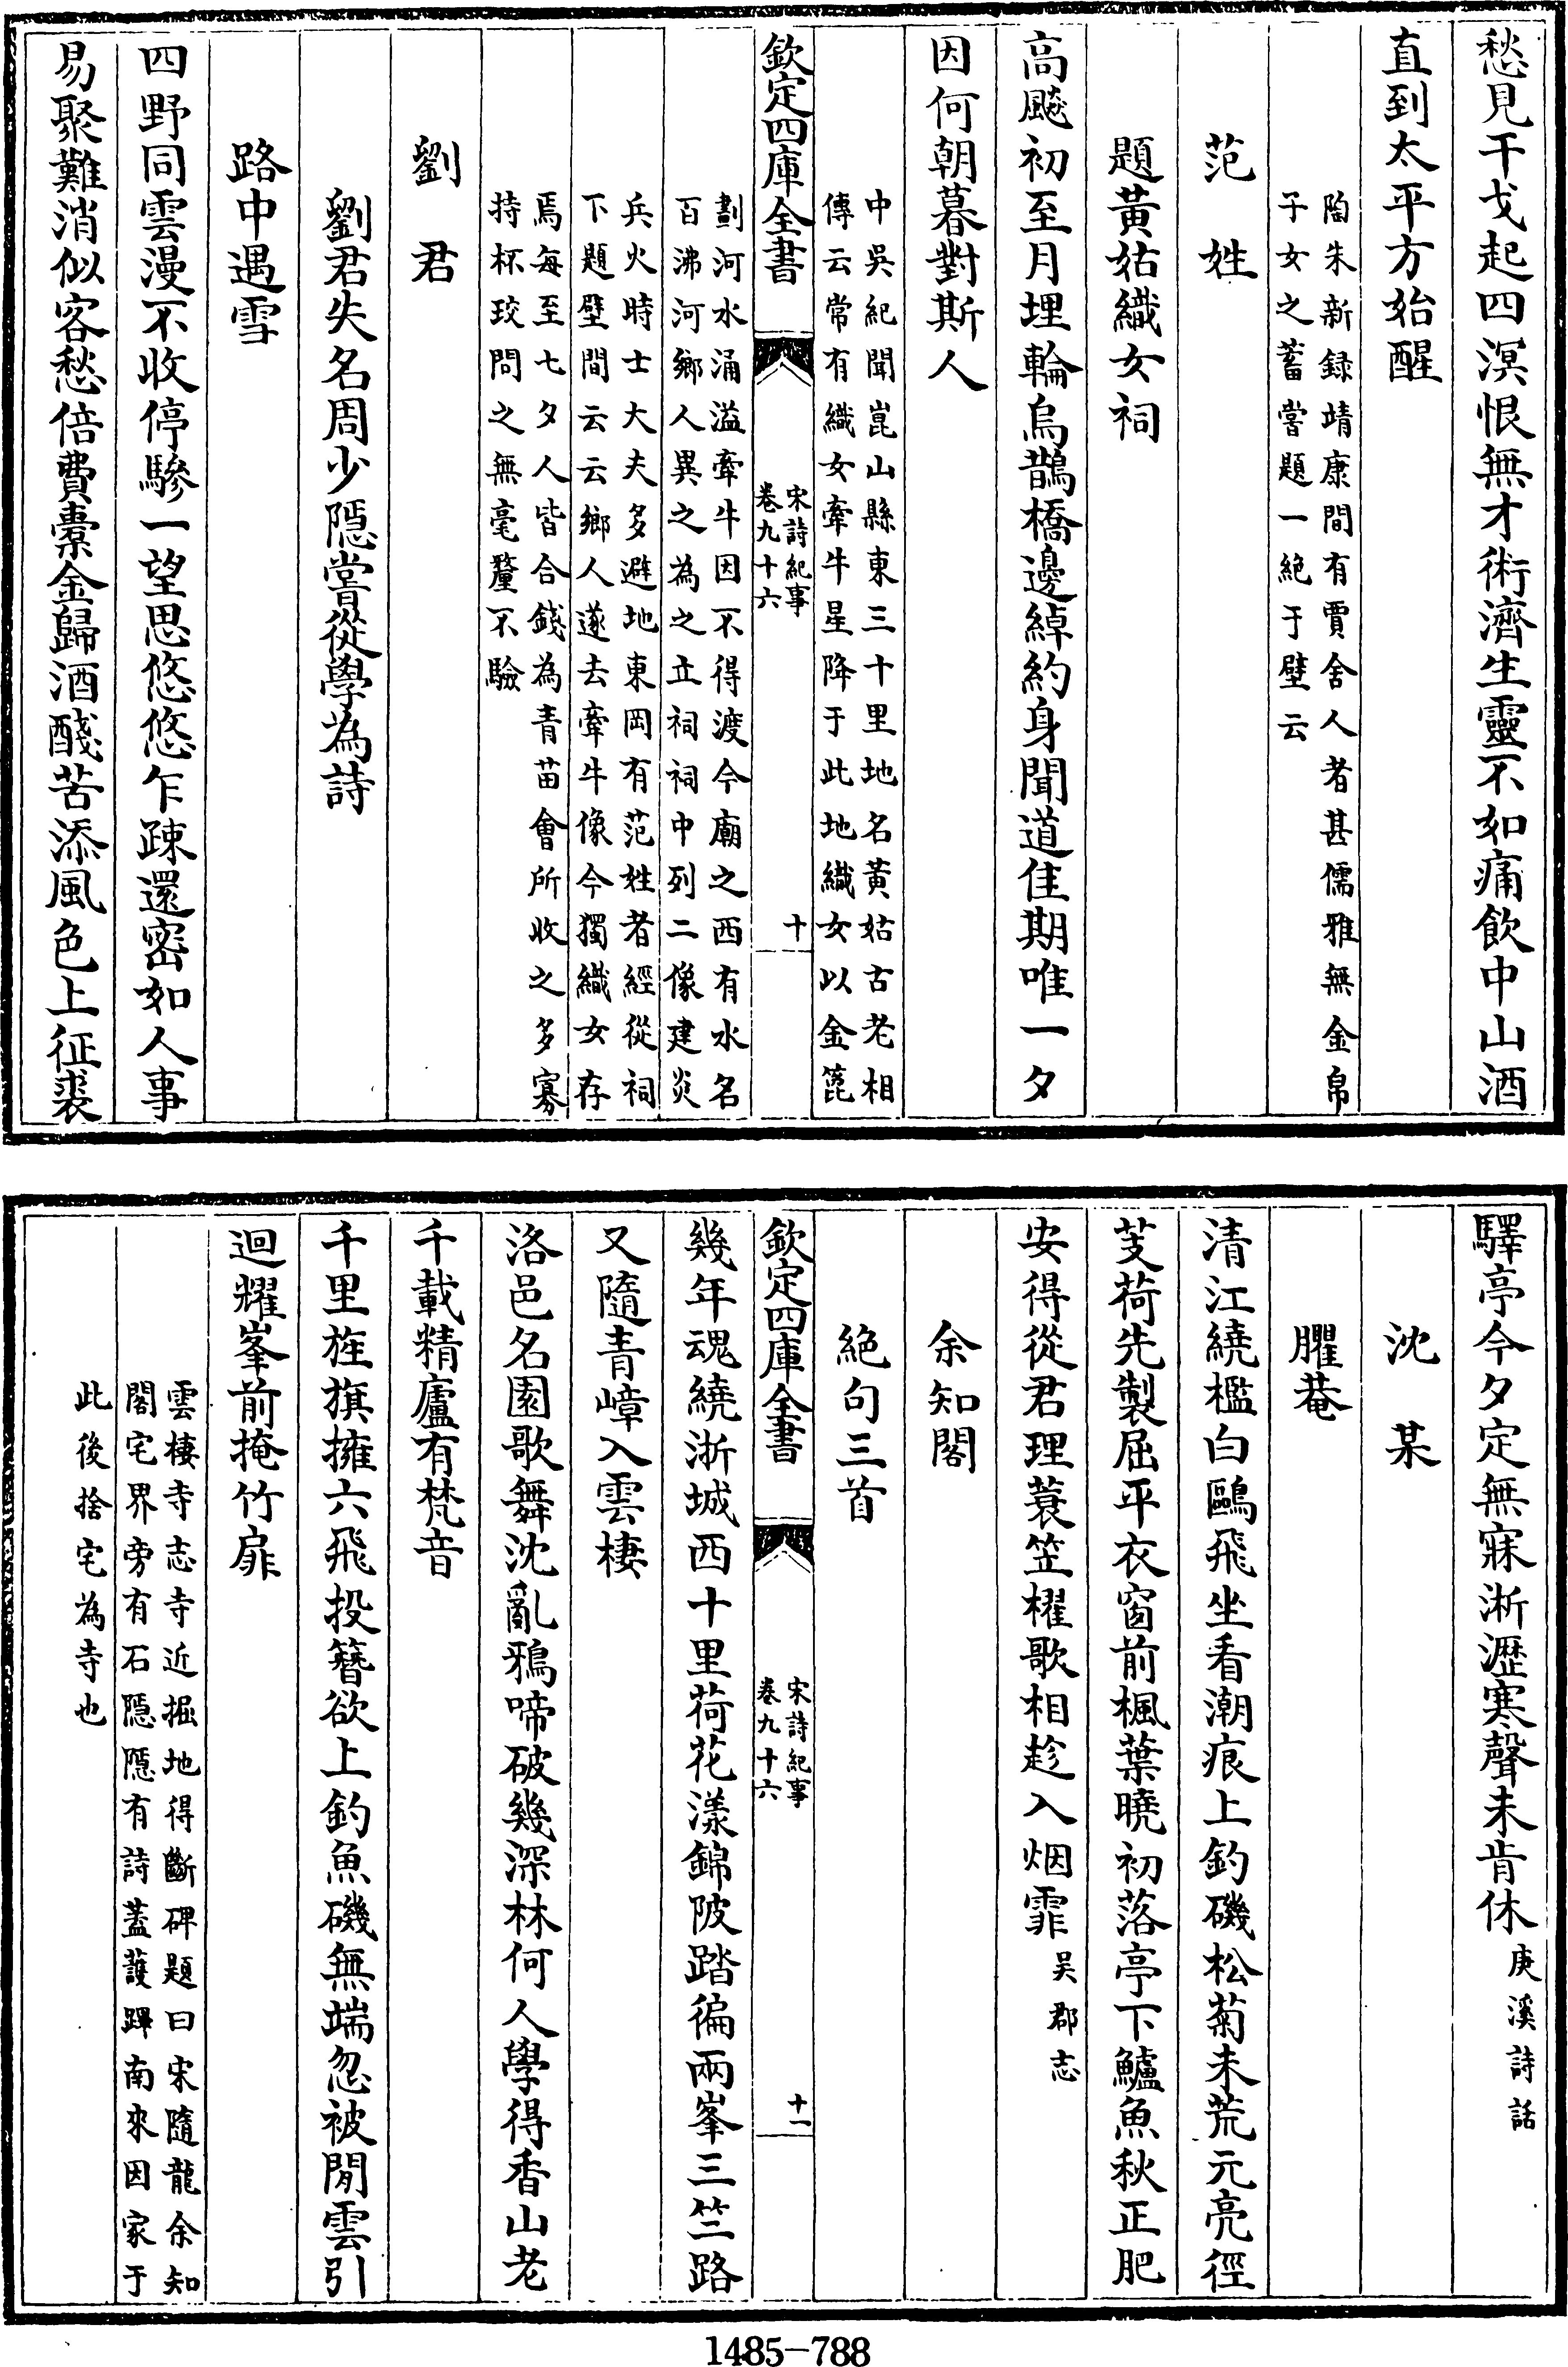 愁見干戈起四溟恨無才術濟生靈不如痛飲中山酒
直到太平方始醒
陶朱新録靖康間有賈舍人者甚儒雅無金帛
子女之蓄嘗題一絶于壁云
范姓
題黃姑織女祠
高飈初至月埋輪烏鵲橋邊綽約身聞道佳期唯一夕
因何朝暮對斯人
中吳紀聞崑山縣東三十里地名黃姑古老相
傳云常有織女牽牛星降于此地織女以金篦
欽定四庫全書
宋詩紀事
卷九十六
十
劃河水涌溢牽牛因不得渡今廟之西有水名
百沸河鄉人異之為之立祠祠中列二像建炎
兵火時士大夫多避地東岡有范姓者經從祠
下題壁間云云鄉人遂去牽牛像今獨織女存
焉每至七夕人皆合錢為青苗會所收之多寡
持杯珓問之無毫釐不驗
劉君
劉君失名周少隱嘗從學為詩
路中遇雪
四野同雲漫不收停驂一望思悠悠乍疎還密如人事
易聚難消似客愁倍費橐金歸酒醆苦添風色上征裘
驛亭今夕定無寐淅瀝寒聲未肯休庚溪詩話
沈某
臞菴
清江繞檻白鷗飛坐看潮痕上釣磯松菊未荒元亮徑
芰荷先製屈平衣窗前楓葉曉初落亭下鱸魚秋正肥
安得從君理蓑笠櫂歌相趁入烟霏吳郡志
余知閣
絶句三首
欽定四庫全書
宋詩紀事
卷九十六
十一
幾年魂繞浙城西十里荷花漾錦陂踏徧兩峯三竺路
又隨青嶂入雲棲
洛邑名園歌舞沈亂鴉啼破幾深林何人學得香山老
千載精廬有梵音
千里旌旗擁六飛投簪欲上釣魚磯無端忽被閒雲引
迴耀峯前掩竹扉
雲棲寺志寺近掘地得斷碑題曰宋隨龍余知
閣宅界旁有石隱隱有詩蓋䕶蹕南來因家于
此後捨宅為寺也
1485-788